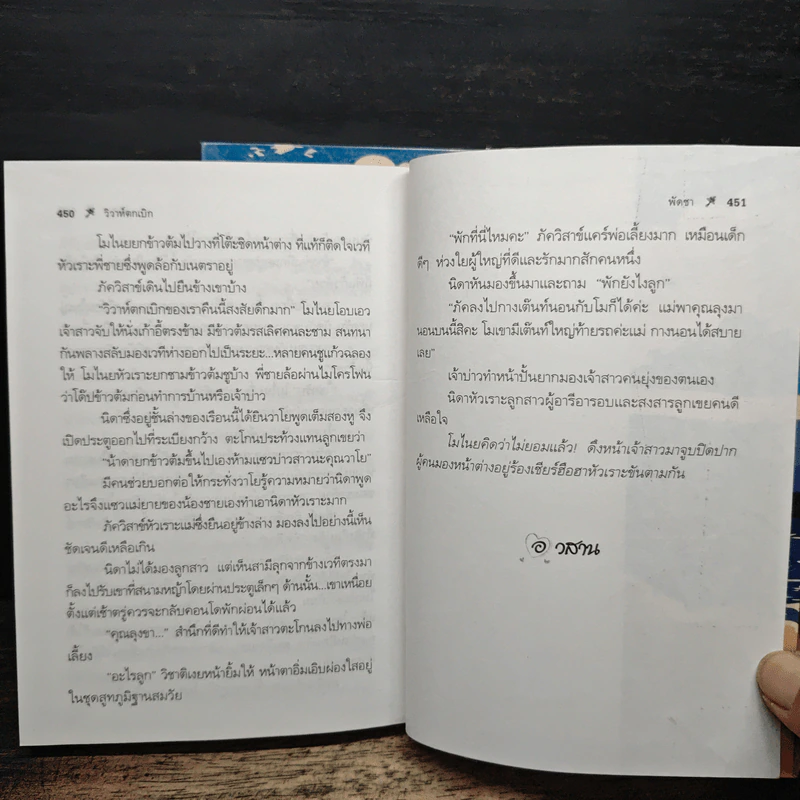 450 วิวาห์ตกเบิก
โมไนยยกข้าวต้มไปวางที่โต๊ะชิดหน้าต่าง ที่แท้ก็ติดใจเวที
หัวเราะพี่ชายซึ่งพูดล้อกับเนตราอยู่
ภัควิสาข์เดินไปยืนข้างเขาบ้าง
“วิวาห์ตกเบิกของเราคืนนี้สงสัยดึกมาก” โมไนยโอบเอว
เจ้าสาวจับให้นั่งเก้าอี้ตรงข้าม มีข้าวต้มรสเลิศคนละชาม สนทนา
กันพลางสลับมองเวทีห่างออกไปเป็นระยะ...หลายคนชูแก้วฉลอง
ให้ โมไนยหัวเราะยกชามข้าวต้มชูบ้าง พี่ชายล้อผ่านไมโครโฟน
ว่าโด๊ปข้าวต้มก่อนทำการบ้านหรือเจ้าบ่าว
นิดาซึ่งอยู่ชั้นล่างของเรือนนี้ได้ยินวาโยพูดเต็มสองหู จึง
เปิดประตูออกไปที่ระเบียงกว้าง ตะโกนประท้วงแทนลูกเขยว่า
“น้าดายกข้าวต้มขึ้นไปเองห้ามแซวบ่าวสาวนะคุณวาโย”
มีคนช่วยบอกต่อให้กระทั่งวาโยรู้ความหมายว่านิดาพูด
อะไรจึงแซวแม่ยายของน้องชายเองทำเอานิดาหัวเราะมาก
ภัควิสาข์หัวเราะแม่ซึ่งยืนอยู่ข้างล่าง มองลงไปอย่างนี้เห็น
ชัดเจนดีเหลือเกิน
นิดาไม่ได้มองลูกสาว แต่เห็นสามีลุกจากข้างเวทีตรงมา
ก็ลงไปรับเขาที่สนามหญ้าโดยผ่านประตูเล็กๆ ด้านนั้น...เขาเหนื่อย
ตั้งแต่เช้าตรู่ควรจะกลับคอนโดพักผ่อนได้แล้ว
“คุณลุงขา...” สำนึกที่ดีทำให้เจ้าสาวตะโกนลงไปทางพ่อ
เลี้ยง
“อะไรลูก” วิชาติเงยหน้ายิ้มให้ หน้าตาอิ่มเอิบผ่องใสอยู่
ในชุดสูทภูมิฐานสมวัย
พัดชา 451
“พักที่นี่ไหมคะ” ภัควิสาข์แคร์พ่อเลี้ยงมาก เหมือนเด็ก
ดีๆ ห่วงใยผู้ใหญ่ที่ดีและรักมากสักคนหนึ่ง
นิดาหันมองขึ้นมาและถาม “พักยังไงลูก”
“ภัคลงไปกางเต๊นท์นอนกับโมก็ได้ค่ะ แม่พาคุณลุงมา
นอนบนนี้สิคะ โมเขามีเต๊นท์ใหญ่ท้ายรถค่ะแม่ กางนอนได้สบาย
เลย”
เจ้าบ่าวทำหน้าปั้นยากมองเจ้าสาวคนยุ่งของตนเอง
นิดาหัวเราะลูกสาวผู้อารีอารอบและสงสารลูกเขยคนดี
เหลือใจ
โมไนยคิดว่าไม่ยอมแล้ว! ดึงหน้าเจ้าสาวมาจูบปิดปาก
ผู้คนมองหน้าต่างอยู่ร้องเชียร์ฮือฮาหัวเราะขันตามกัน
อวสาน